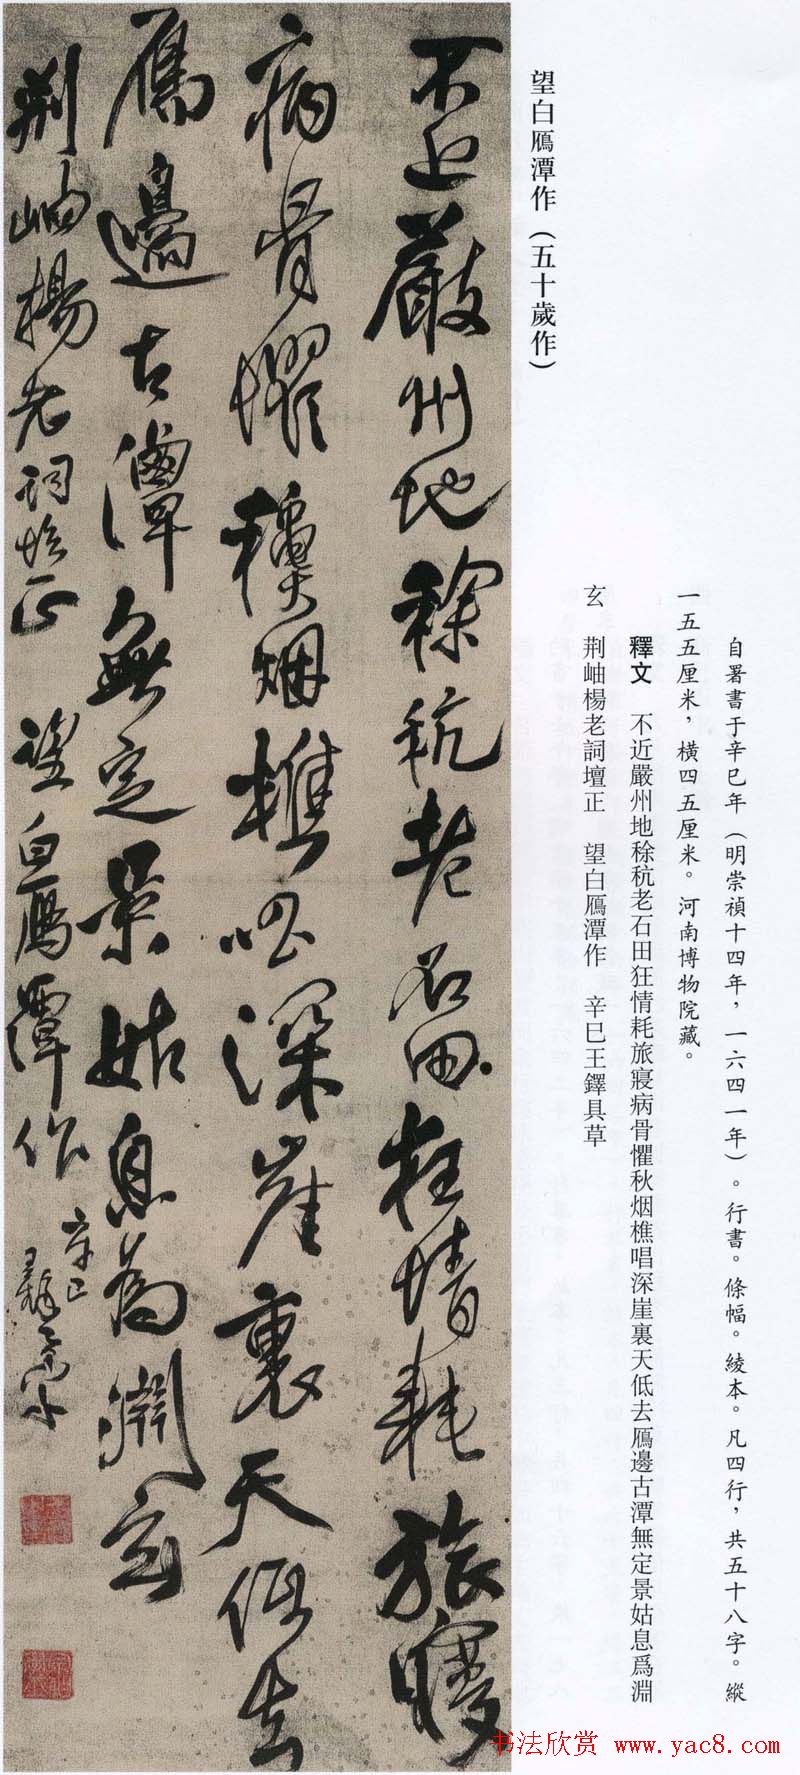 望白鴈潭作（五十歲作）
自署書于辛巳年（明崇禎十四年，一六四一年）。行書。條幅。綾本。凡四行，共五十八字。縱
一五五厘米，橫四五厘米。河南博物院藏。
釋文　不近嚴州地稌秔老石田狂情耗旅寢病骨懼秋烟樵唱深崖裏天低去鴈邊古潭無定景姑息爲淵
玄　荆岫楊老詞壇正　望白鴈潭作　辛巳王鐸具草
不近嚴州地稌秔老石田狂情耗旅寢
病骨懼龝烟樵唱深崖裏天低去
鴈邊古潭無定景姑息為淵玄
荆岫楊老詞壇正　望白鴈潭作　辛巳　王鐸具草
书法欣赏 www.yac8.com